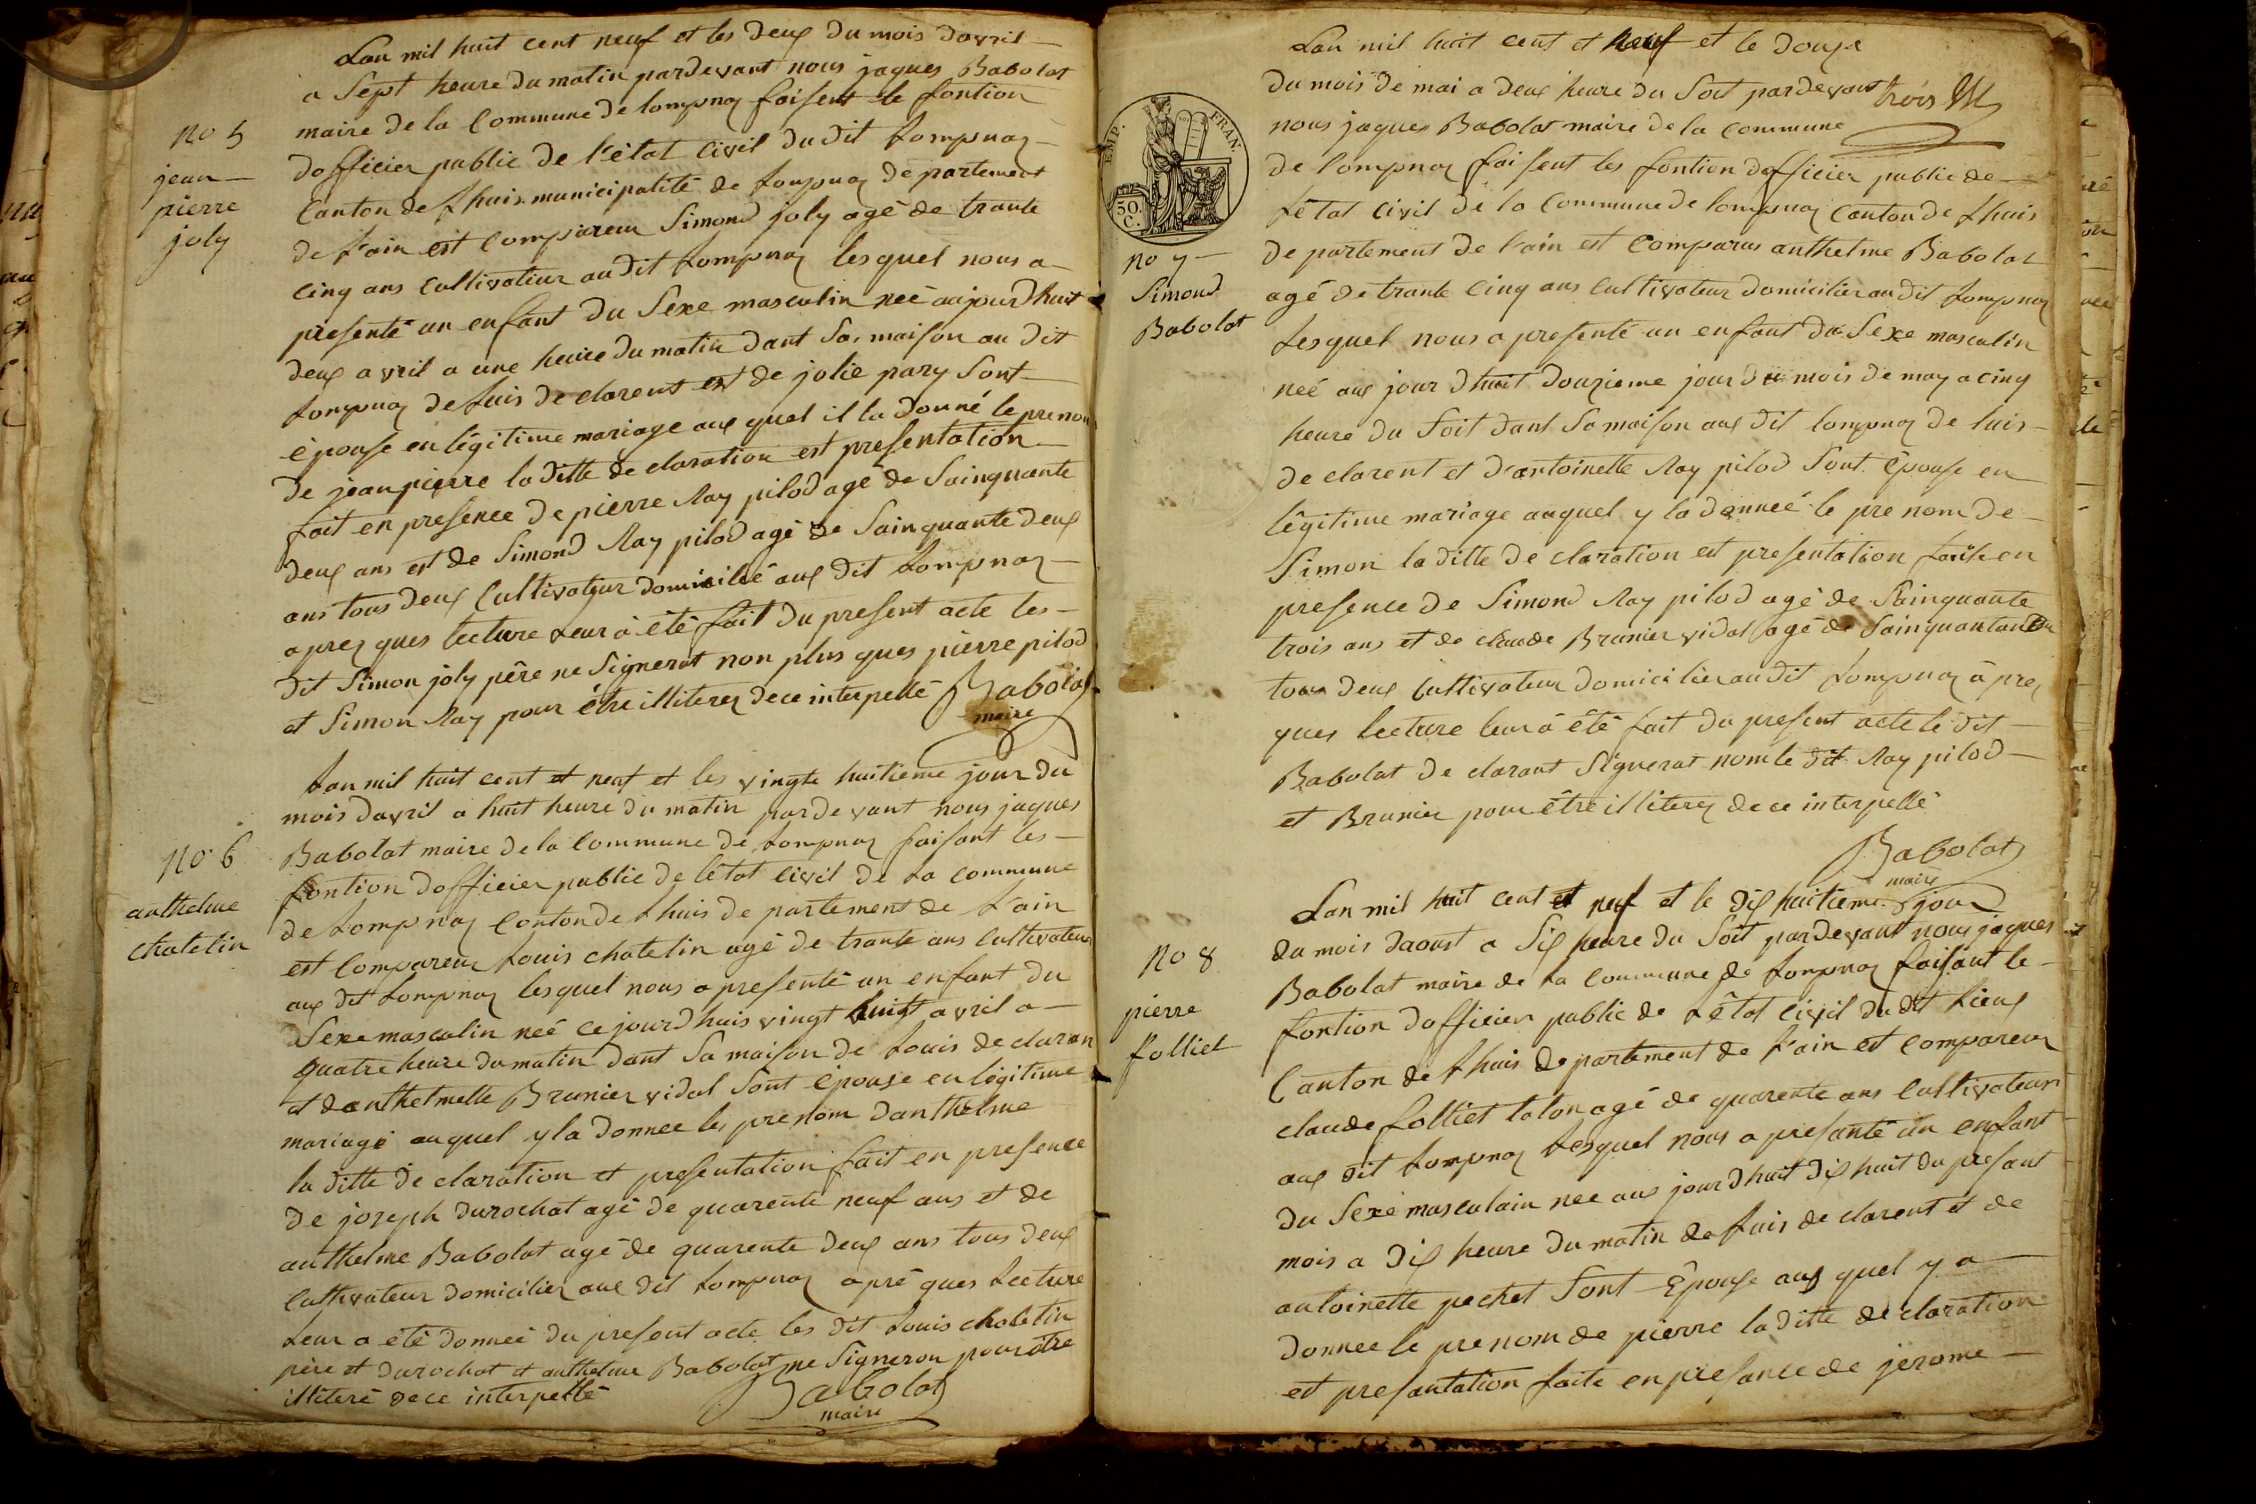 Lan mil huit cent neuf et les deux du mois davril
a Sept heure du matin pardevant nous jaques Babolat
maire de la Commune de lompnaz faisent le fontion
dofficier public de l'état Civil du dit Lompnaz
Canton de Lhuis municipalité de Lompnaz departement
de L'ain est Compareu Simond joly agé de trante
cinq ans Cultivateur audit Lompnaz lesquel nous a
presenté un enfant du Sexe masculin neé aujourdhuit
deux avril a une heure du matin dant Sa maison au dit
Lompnaz de Luis declarent est de jolie pary Sont
épouse en légitime mariage aux quel il la donné le prenom
de jean pierre la ditte declaration est presentation
fait en presence de pierre Ray pilod agé de Sainquante
deux ans est de Simond Ray pilod agé de Sainquante deux
ans tous deux Cultivateur domicilié aux dit Lompnaz
aprez ques lecture Leur à été fait du present acte les
dit Simon joly père ne Signerat non plus ques pierre pilod
et Simon Ray pour être illiterez dece interpellé Babolat
maire
no 5
jean
pierre
joly
Lan mil huit cent et neuf et les vingte huitieme jour du
mois davril a huit heure du matin pardevant nous jaques
Babolat maire de la Commune de Lompnaz faisant les
fontion dofficier public de létat Civil de La Commune
de Lompnaz Contonde Lhuis departement de L'ain
est Compareu Louis chatelin agé de trante ans Cultivateur
aux dit Lompnaz lesquel nous a presenté un enfant du
Sexe masculin neé cejourdhuis vingt huit avril a
quatre heure du matin dant Sa maison de Louis declaran
et danthelmette Brunier vidal Sont épouse en légitime
mariage auquel y la donnee les prenom danthelme
la ditte declaration et presentation fait en presence
de joseph durochat agé de quarente neuf ans et de
anthelme Babolat agé de quarente deux ans tous deux
Cultivateur domicilier aux dit Lompnaz apré ques Lecture
Leur a été donneé du present acte les dit Louis chatelin
père et durochat et anthelme Babolat ne Signeron pour être
illiteré dece interpellé Babolat
maire
no 6
anthelme
chatelin
Lan mil huit cent et neuf et le douze
du mois de mai a deux heure du Soit pardevant trois
nous jaques Babolat maire de la Commune
de Lompnaz faisent les fontion dofficier public de
L'état Civil de la Commune de lompnaz Canton de Lhuis
departement de l'ain est Comparus anthelme Babolat
agé de trante Cinq ans Cultivateur domicilier audit Lompnaz
Lesquel nous a presenté un enfant du Sexe masculin
neé aux jourdhuit douzieme jour du mois de may a cinq
heure du Soit dant Sa maison aux dit lompnaz de luis
declarent et d'antoinette Ray pilod Sont épouse en
légitime mariage auquel y la donneé le prenom de
Simon la ditte declaration est presentation faite en
presence de Simond Ray pilod agé de Sainquante
trois ans et de claude Brunier vidal agé de
tous deux Cultivateur domicilier audit Lompnaz àprez
ques lecture leur à été fait du present acte le dit
Babolat declarant Signerat nom le dit Ray pilod
et Brunier pour être illiterez dece interpellé
Babolat
maire
EMP. FRAN.
50.
C.
no 7
Simond
Babolat
Lan mil huit cent et neuf et le dix huitieme jour
du mois daoust a Six heure du Soit pardevant nous jaques
Babolat maire de La Commune de Lompnaz faisant le
fontion dofficier public de Létat Civil du dit Lieux
Canton de Lhuis departement de L'ain est Compareu
claude folliet talon agé de quarente ans Cultivateur
aux dit Lompnaz Lesquel nous a presanté un enfant
du Sexe masculain nee aux jourdhuit dix huit du presant
mois a dix heure du matin de Luis declarent et de
antoinette pechet Sont épouse aux quel y a
donnee le prenom de pierre la ditte declaration
est presantation faite en presance de jerome
no 8
pierre
folliet